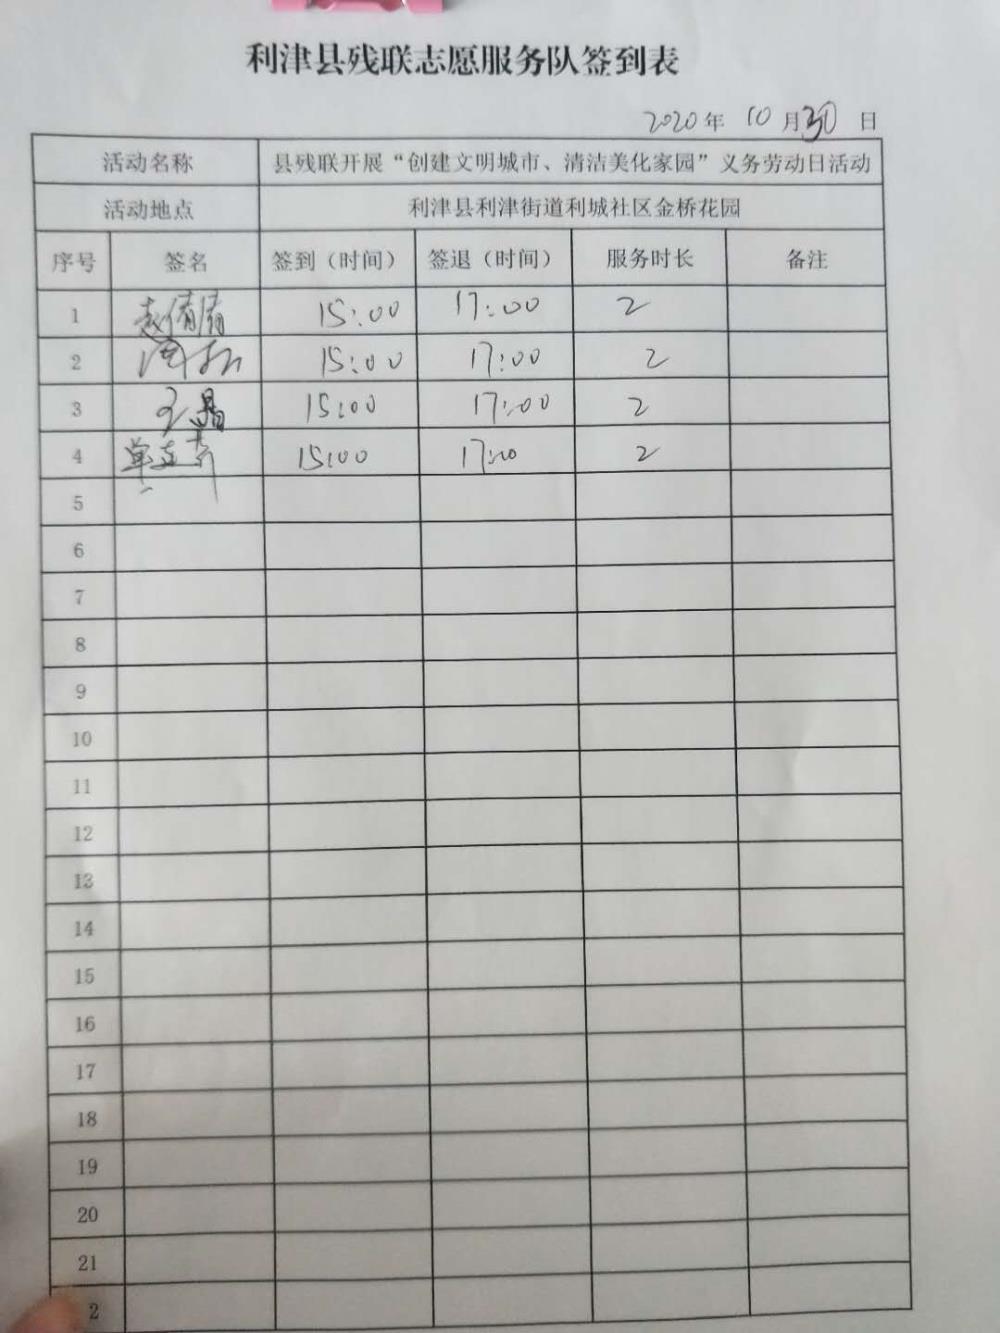 利津县残联志愿服务队签到表
2020年 10月30日
活动名称 县残联开展“创建文明城市、清洁美化家园”义务劳动日活动
活动地点 利津县利津街道利城社区金桥花园
序号 签名 签到（时间） 签退（时间） 服务时长 备注
1 赵倩倩 15:00 17:00 2
2 15:00 17:00 2
3 王晶 15:00 17:00 2
4 15:00 17:00 2
5
6
7
8
9
10
11
12
13
14
15
16
17
18
19
20
21
2